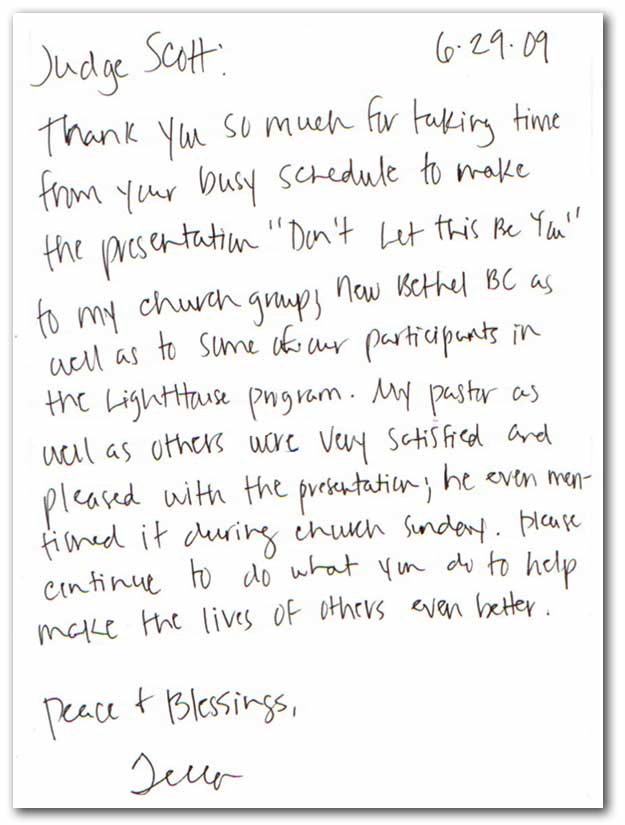 Judge Scott: 6.29.09
Thank you so much for taking time
from your busy schedule to make
the presentation "Don't Let This Be You"
to my church group; New Bethel BC as
well as to some of our participants in
the LightHouse program. My pastor as
well as others were very satisfied and
pleased with the presentation; he even men-
tioned it during church Sunday. Please
continue to do what you do to help
make the lives of others even better.
Peace + Blessings,